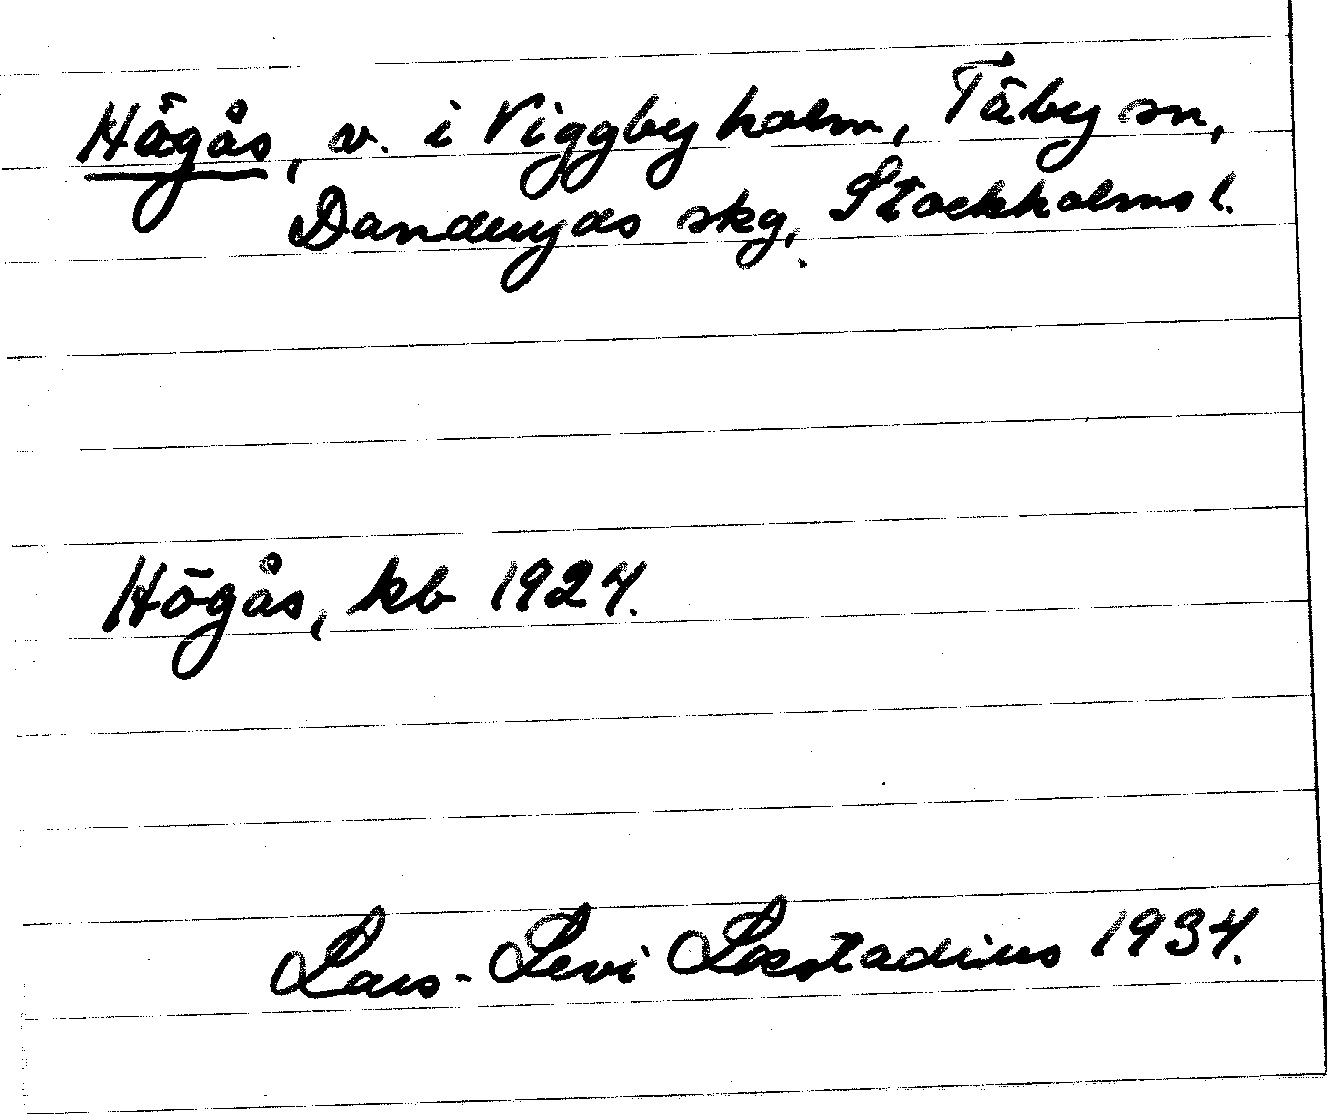 Högås, v. i Viggbyholm, Täby sn,
Danderyds skg, Stockholms l.
Högås, kb 1924.
Lars-Levi Læstadius 1934.